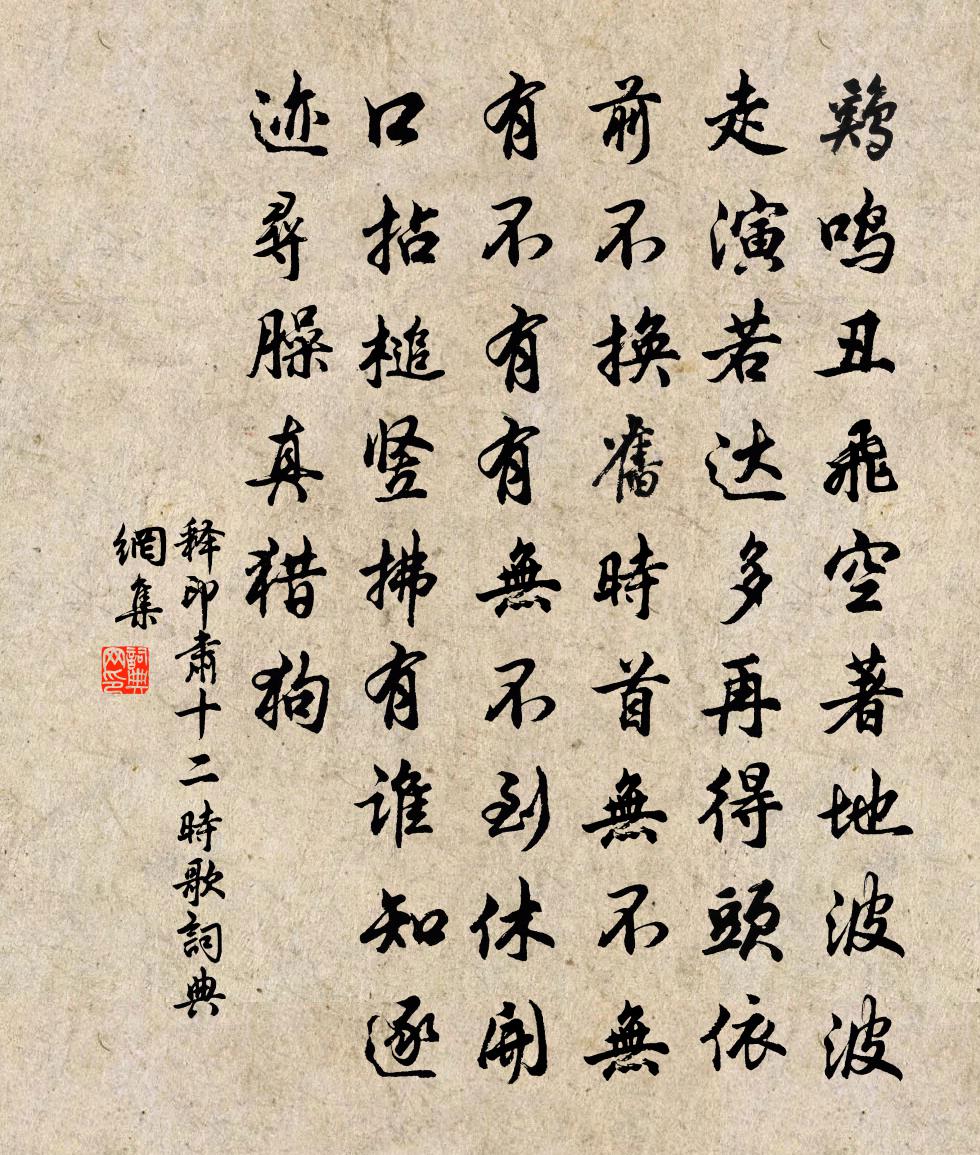 鷄鸣丑飛空著地波波
走演若达多再得頭依
前不换舊時首無不無
有不有有無不到休開
口拈槌竖拂有谁知逐
迹尋臊真猎狗
释印肃十二時歌詞典
網集
詞典网印